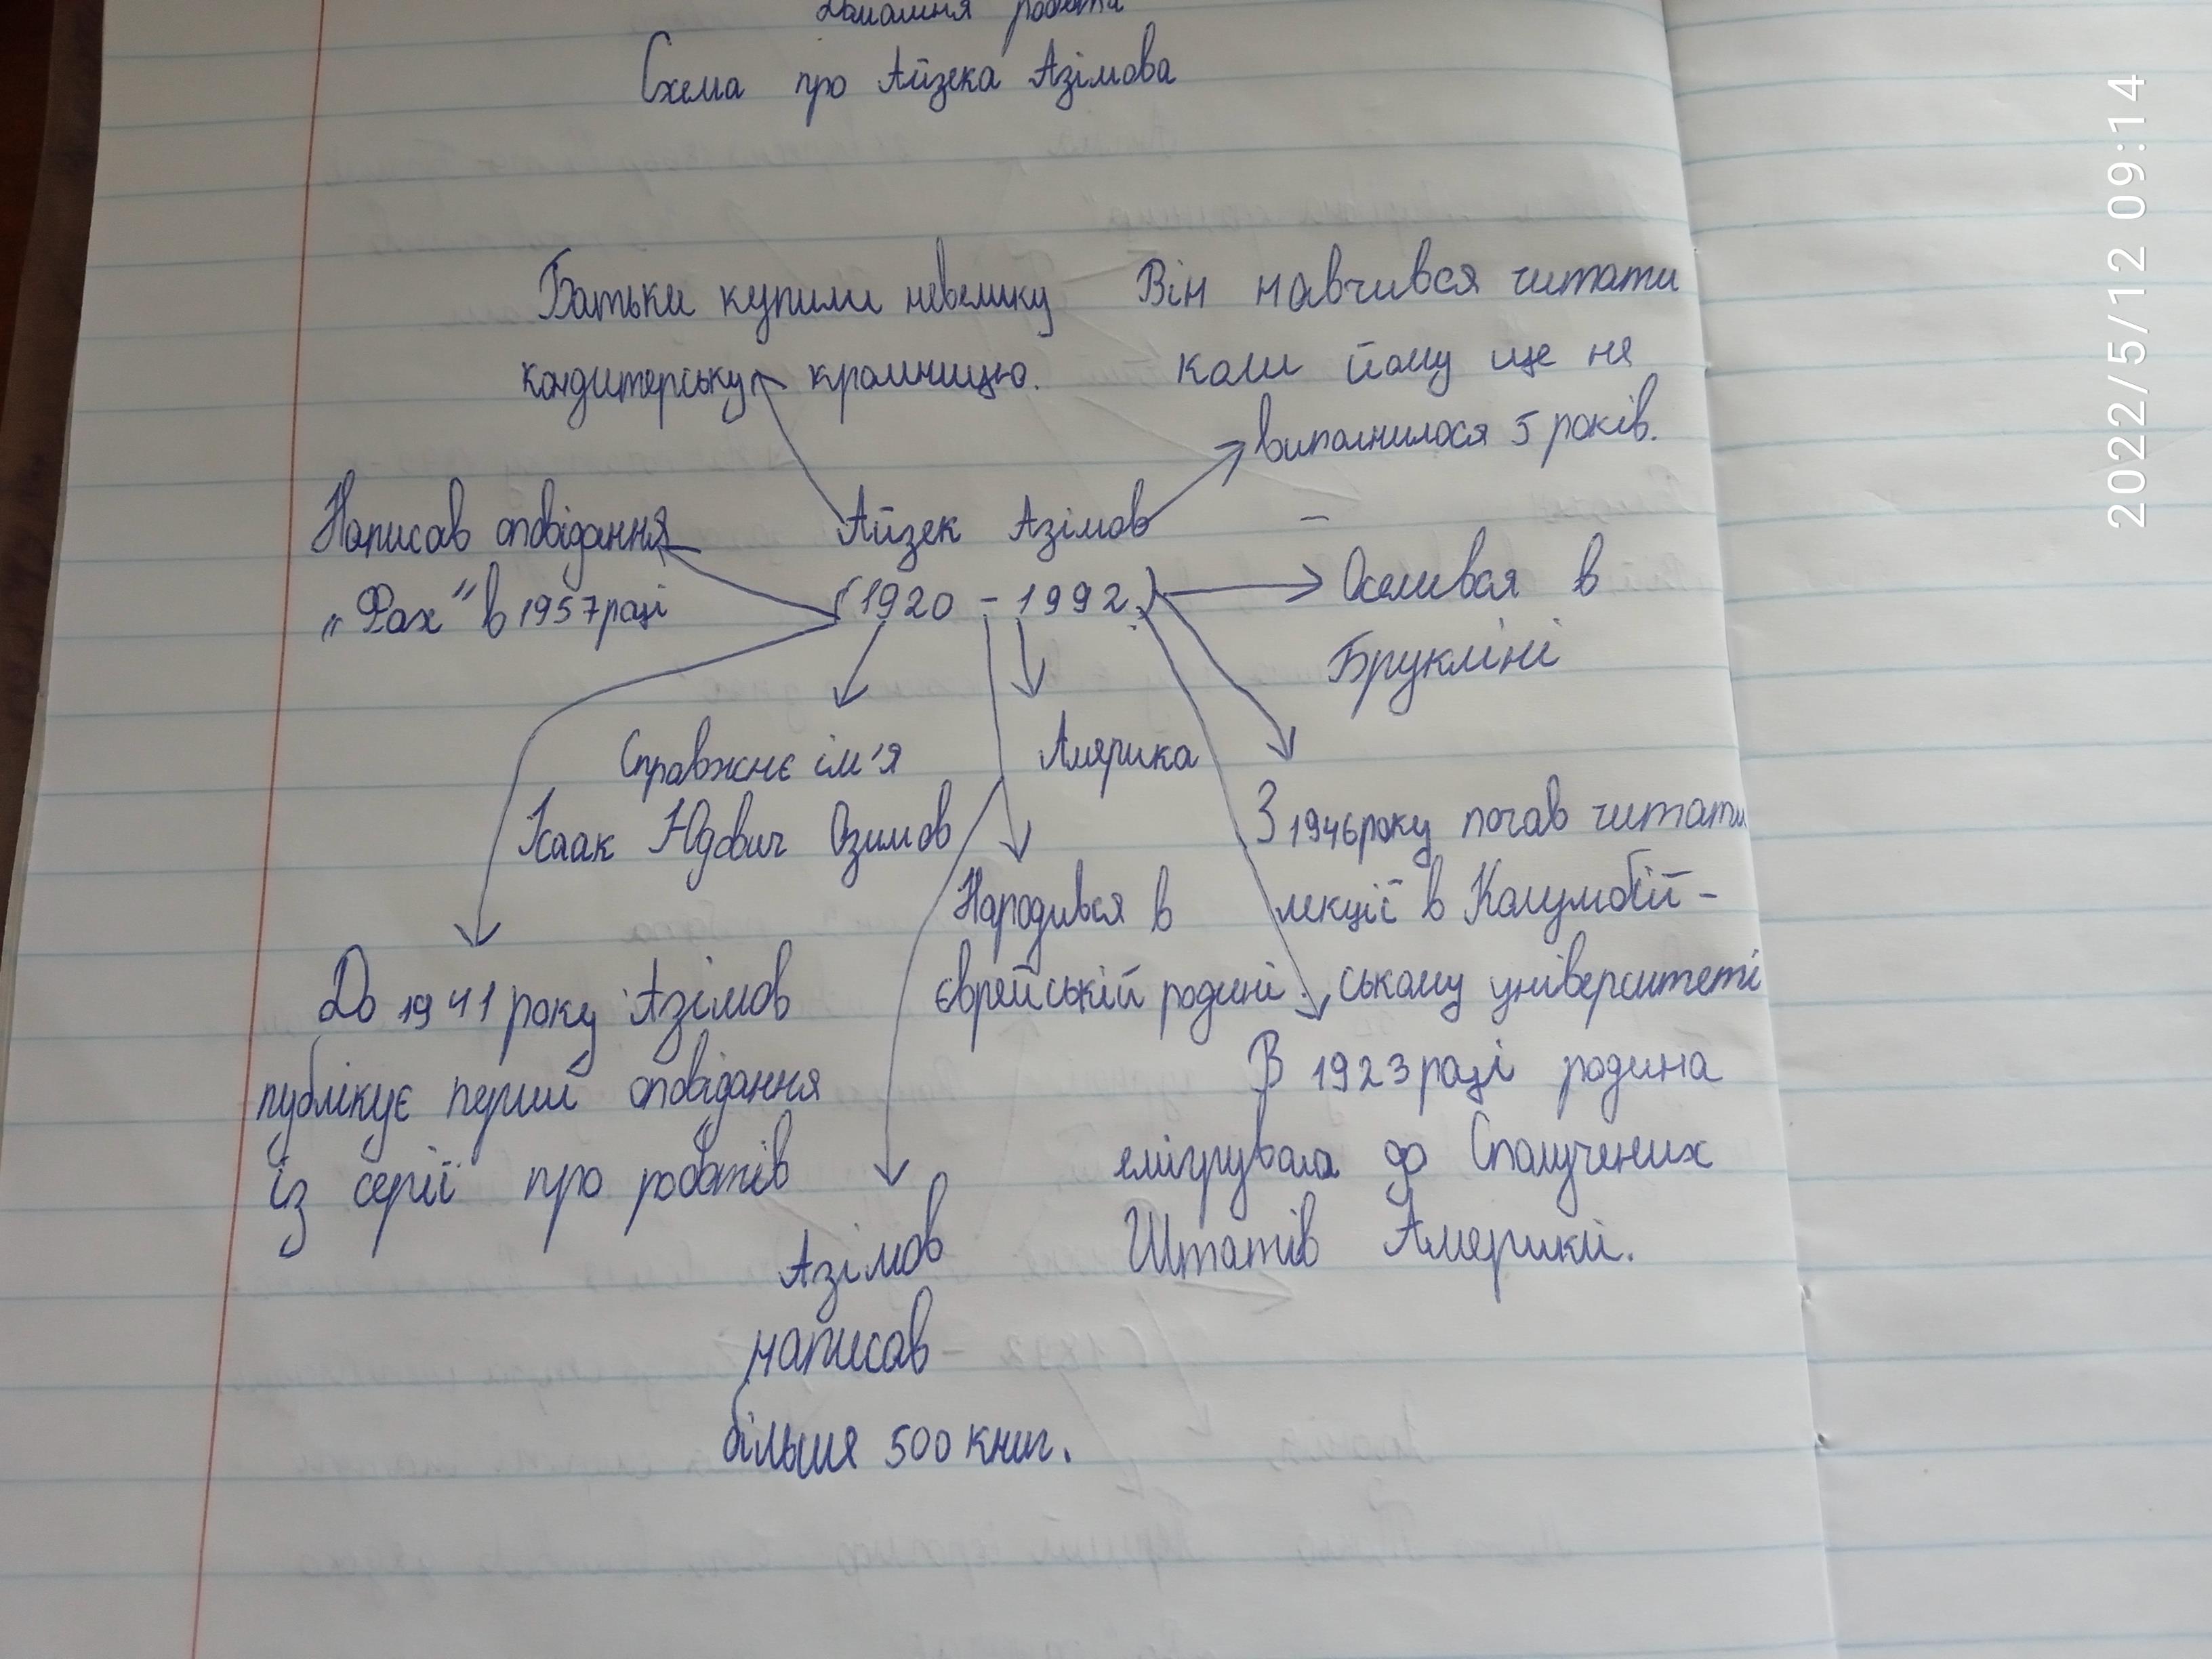 Домашня робота
Схема про Айзека Азімова
Батьки купили невелику
кондитерську крамницю.
Він навчився читати
коли йому ще не
виповнилося 5 років.
Написав оповідання
„Фах" в 1957 році
Айзек Азімов
(1920 - 1992)
Оселився в
Брукліні
Справжнє ім'я
Ісаак Юдович Озимов
Америка
З 1946 року почав читати
лекції в Колумбій-
ському університеті
Народився в
єврейській родині.
До 1941 року Азімов
публікує перші оповідання
із серії про роботів
В 1923 році родина
емігрувала до Сполучених
Штатів Америки.
Азімов
написав
більше 500 книг.
2022/5/12 09:14